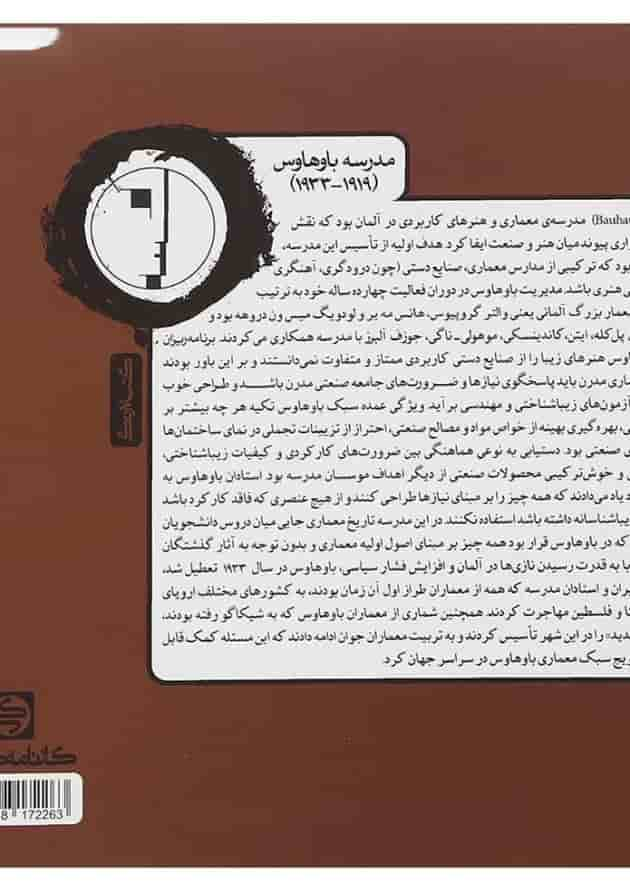 مدرسه باوهاوس
(۱۹۱۹-۱۹۳۳)
(Bauhau مدرسه‌ی معماری و هنرهای کاربردی در آلمان بود که نقش
راری پیوند میان هنر و صنعت ایفا کرد. هدف اولیه از تأسیس این مدرسه،
بود که ترکیبی از مدارس معماری، صنایع دستی (چون درودگری، آهنگری
ی هنری باشد. مدیریت باوهاوس در دوران فعالیت چهارده ساله خود به ترتیب
عمار بزرگ آلمانی یعنی والتر گروپیوس، هانس مه یر و لودویگ میس ون دروهه بود و
پل‌کله، ایتن، کاندینسکی، موهولی-ناگی، جوزف آلبرز با مدرسه همکاری می‌کردند. برنامه‌ریزان
اوس هنرهای زیبا را از صنایع دستی کاربردی ممتاز و متفاوت نمی‌دانستند و بر این باور بودند
ماری مدرن باید پاسخگوی نیازها و ضرورت‌های جامعه صنعتی مدرن باشد و طراحی خوب
آزمون‌های زیباشناختی و مهندسی بر آید. ویژگی عمده سبک باوهاوس تکیه هر چه بیشتر بر
ی، بهره‌گیری بهینه از خواص مواد و مصالح صنعتی، احتراز از تزیینات تجملی در نمای ساختمان‌ها
ی صنعتی بود. دستیابی به نوعی هماهنگی بین ضرورت‌های کارکردی و کیفیات زیباشناختی،
ی و خوش‌ترکیبی محصولات صنعتی از دیگر اهداف موسسان مدرسه بود. استادان باوهاوس به
د یاد می‌دادند که همه چیز را بر مبنای نیازها طراحی کنند و از هیچ عنصری که فاقد کارکرد باشد
زیباشناسانه داشته باشد استفاده نکنند. در این مدرسه تاریخ معماری جایی میان دروس دانشجویان
که در باوهاوس قرار بود همه چیز بر مبنای اصول اولیه معماری و بدون توجه به آثار گذشتگان
با به قدرت رسیدن نازی‌ها در آلمان و افزایش فشار سیاسی، باوهاوس در سال ۱۹۳۳ تعطیل شد،
یران و استادان مدرسه که همه از معماران طراز اول آن زمان بودند، به کشورهای مختلف اروپای
کا و فلسطین مهاجرت کردند. همچنین شماری از معماران باوهاوس که به شیکاگو رفته بودند،
دید» را در این شهر تأسیس کردند و به تربیت معماران جوان ادامه دادند که این مسئله کمک قابل
ویج سبک معماری باوهاوس در سراسر جهان کرد.
8 172263